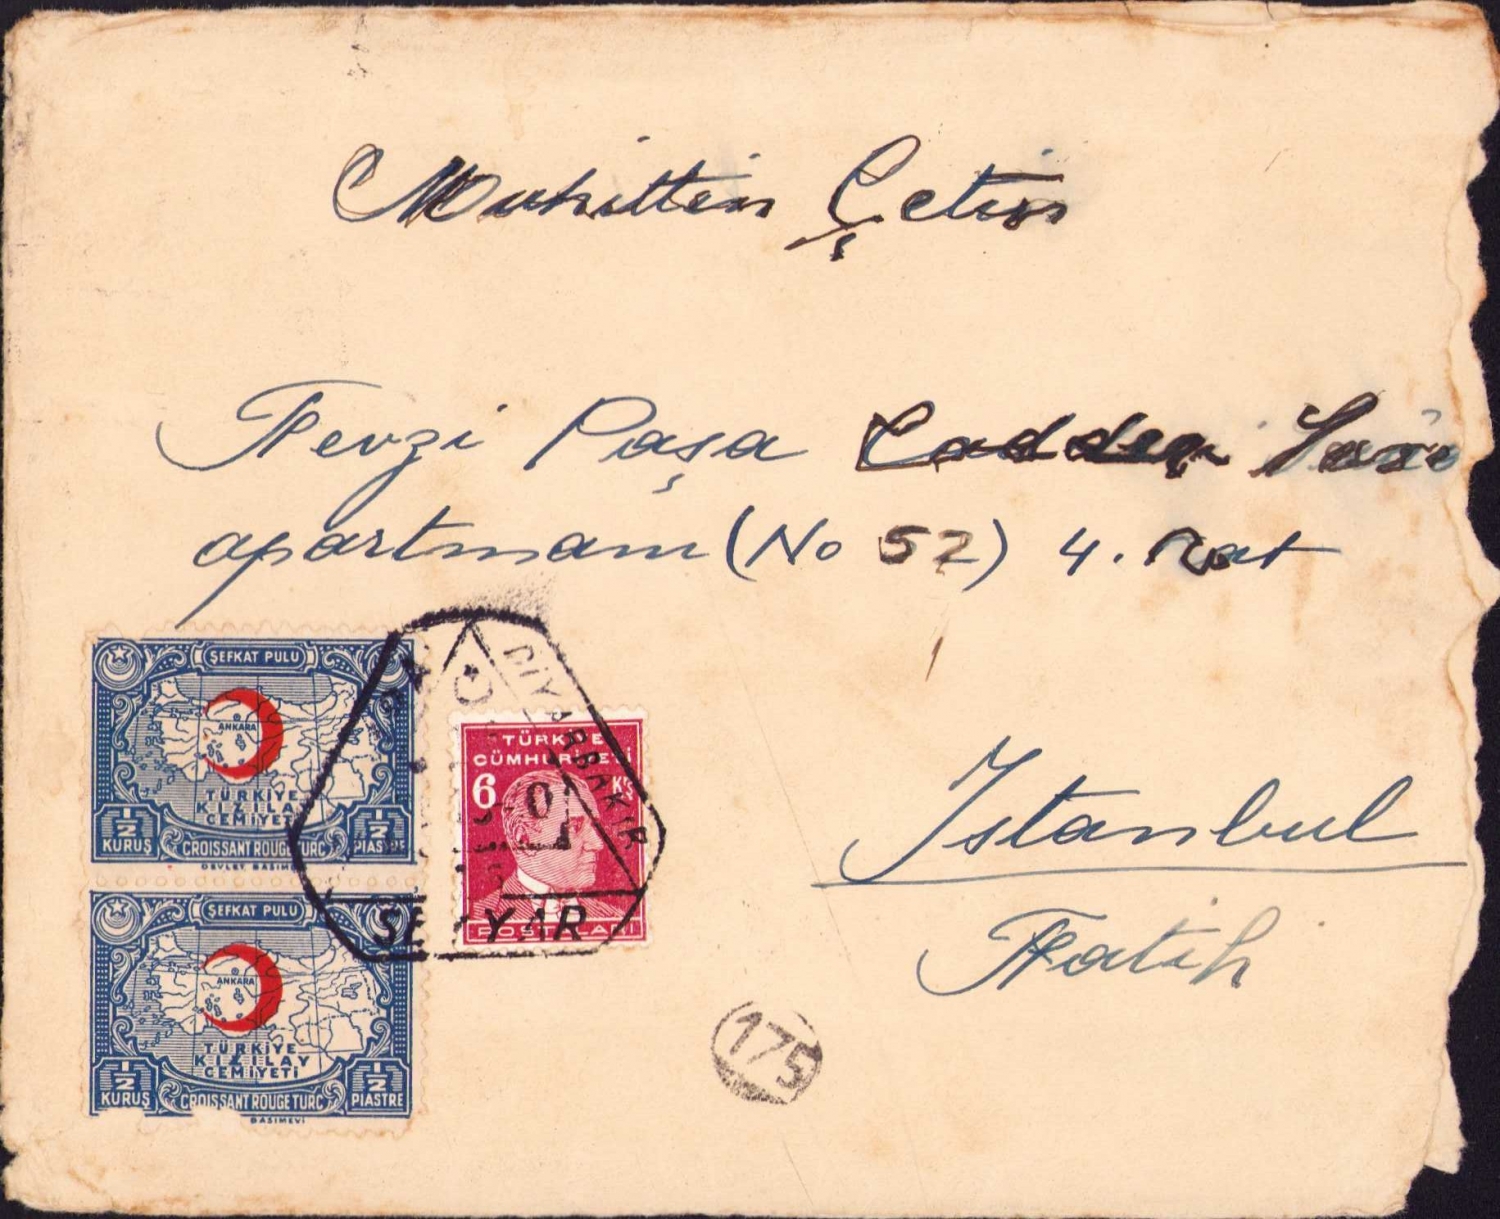 Muhittin Çetin
Fevzi Paşa Caddesi
apartmanı (No 52) 4. Kat
İstanbul
Fatih
ŞEFKAT PULU
ANKARA
TÜRKİYE
KIZILAY
CEMİYETİ
1/2 KURUŞ
CROISSANT ROUGE TURC
1/2 PIASTRE
DEVLET BASIMEVİ
ŞEFKAT PULU
ANKARA
TÜRKİYE
KIZILAY
CEMİYETİ
1/2 KURUŞ
CROISSANT ROUGE TURC
1/2 PIASTRE
BASIMEVİ
TÜRKİYE
CÜMHURİYETİ
6 KŞ
POSTALARI
DİYARBAKIR
SEYYAR
175